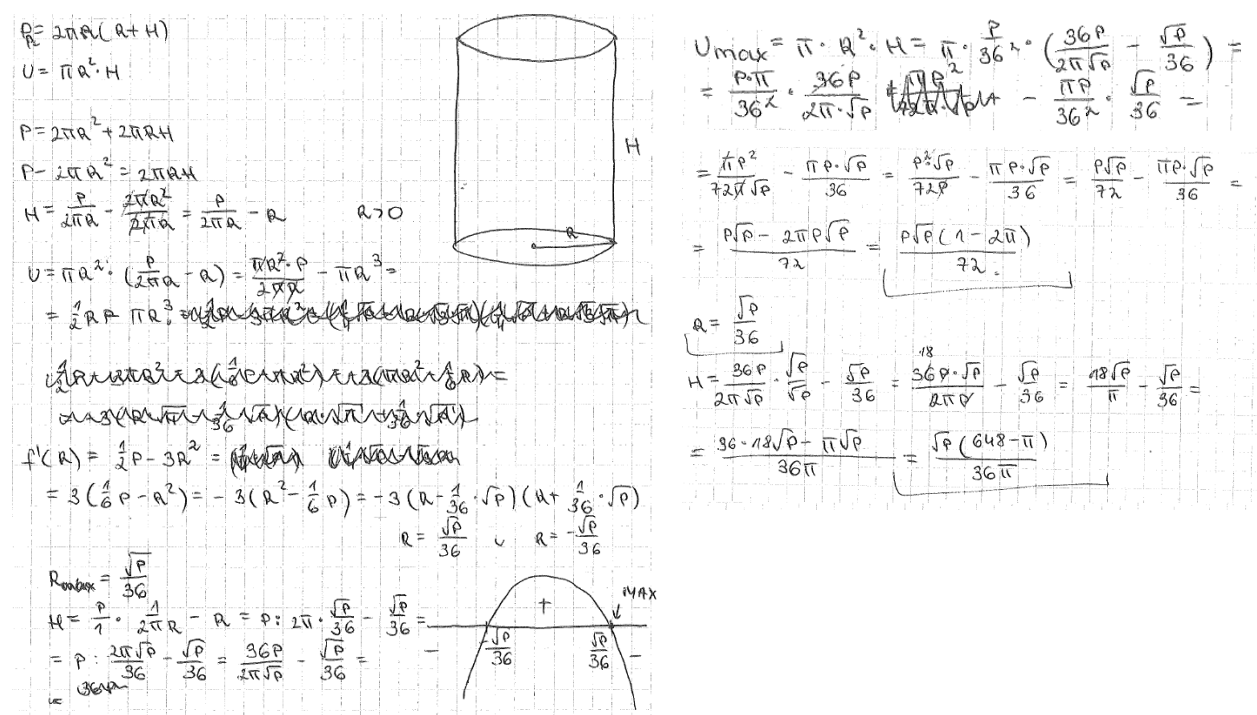 P = 2πR(R+H)
Pc
V = πR²·H
P = 2πR² + 2πRH
P - 2πR² = 2πRH
H = P/2πR - 2πR²/2πR = P/2πR - R    R>0
H
R
V = πR²·(P/2πR - R) = πR²·P/2πR - πR³ =
= 1/2 RP - πR³
f'(R) = 1/2 P - 3R² =
= 3(1/6 P - R²) = -3(R² - 1/6 P) = -3(R - 1/36·√P)(R + 1/36·√P)
R = √P/36 ∨ R = -√P/36
Rmax = √P/36
H = P/1 · 1/2πR - R = P : 2π·√P/36 - √P/36 =
= P : 2π√P/36 - √P/36 = 36P/2π√P - √P/36 =
+ MAX
- -√P/36 √P/36 -
Vmax = π·R²·H = π·P/36²·(36P/2π√P - √P/36) =
= P·π/36² · 36P/2π·√P - πP/36² · √P/36 =
= πP²/72π√P - πP·√P/36 = P²·√P/72P - πP·√P/36 = P√P/72 - πP·√P/36 =
= P√P - 2πP√P/72 = P√P(1-2π)/72
R = √P/36
H = 36P/2π√P · √P/√P - √P/36 = 18 36P·√P/2πP - √P/36 = 18√P/π - √P/36 =
= 36·18√P - π√P/36π = √P(648-π)/36π